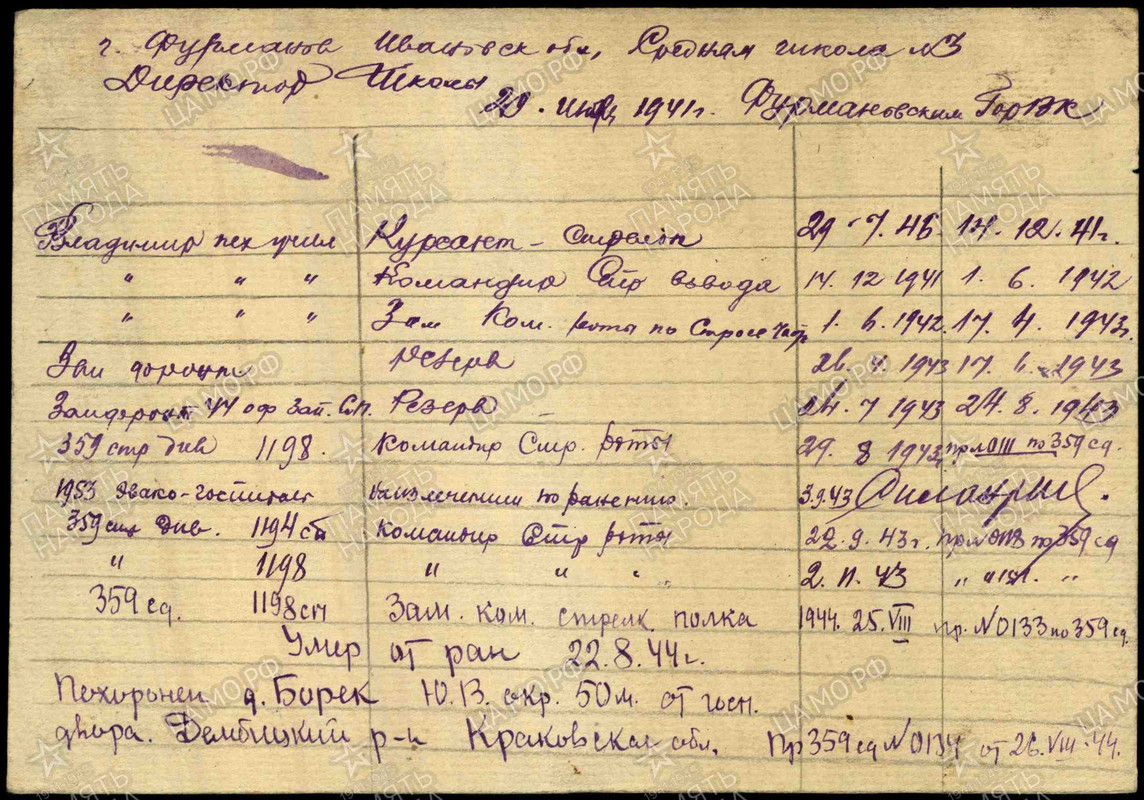 г. Фурманов Ивановск обл, Средняя школа №3
Директор Школы
29. 1941г. Фурмановским ГорВК
Владимир пех учил Курсант - 29 7. 46. 14. 12. 41г.
" " " Командир Стр взвода 14. 12 1941 1. 6. 1942
" " " Зам Ком. роты по Строев част 1. 6. 1942. 17. 4. 1943г.
Зап фронт Резерв 26. 4. 1943 17. 6. 1943
Запфронт 44 оф зап. Сп. Резерв 24. 7 1943 24. 8. 1943
359 стр див 1198. Командир Стр. роты 29. 8 1943 по 359 сд.
1953 Эвако-госпиталь на излечении по ранению. 3.9.43
359 стр див. 1194 сп Командир Стр роты 22. 9. 43г. по 359 сд
" 1198 " " " 2. 11. 43 " "
359 сд. 1198 сп Зам. ком. стрелк. полка 1944. 25. VIII пр. №0133 по 359 сд.
Умер от ран 22.8.44г.
Похоронен д. Борек Ю.В. окр. 50м. от госп.
двора. Дембицкий р-н Краковская обл. Пр 359 сд №0134 от 26.VIII.44.